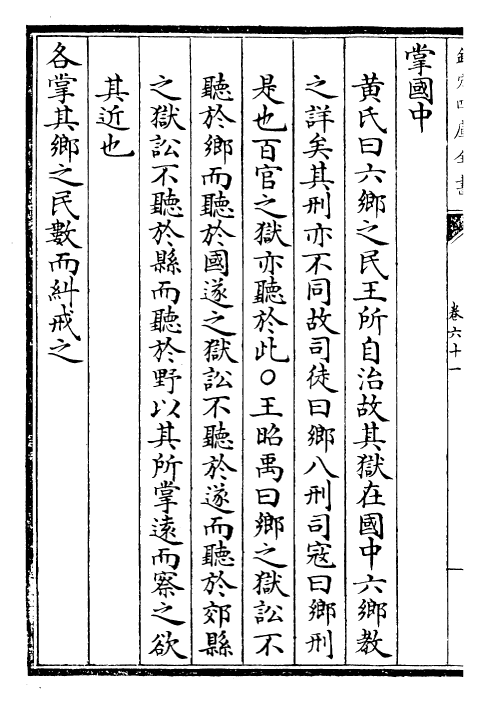 欽定四庫全書
卷六十一
掌國中
黃氏曰六鄉之民王所自治故其獄在國中六鄉教
之詳矣其刑亦不同故司徒曰鄉八刑司寇曰鄉刑
是也百官之獄亦聽於此○王昭禹曰鄉之獄訟不
聽於鄉而聽於國遂之獄訟不聽於遂而聽於郊縣
之獄訟不聽於縣而聽於野以其所掌逺而察之欲
其近也
各掌其鄉之民數而糾戒之